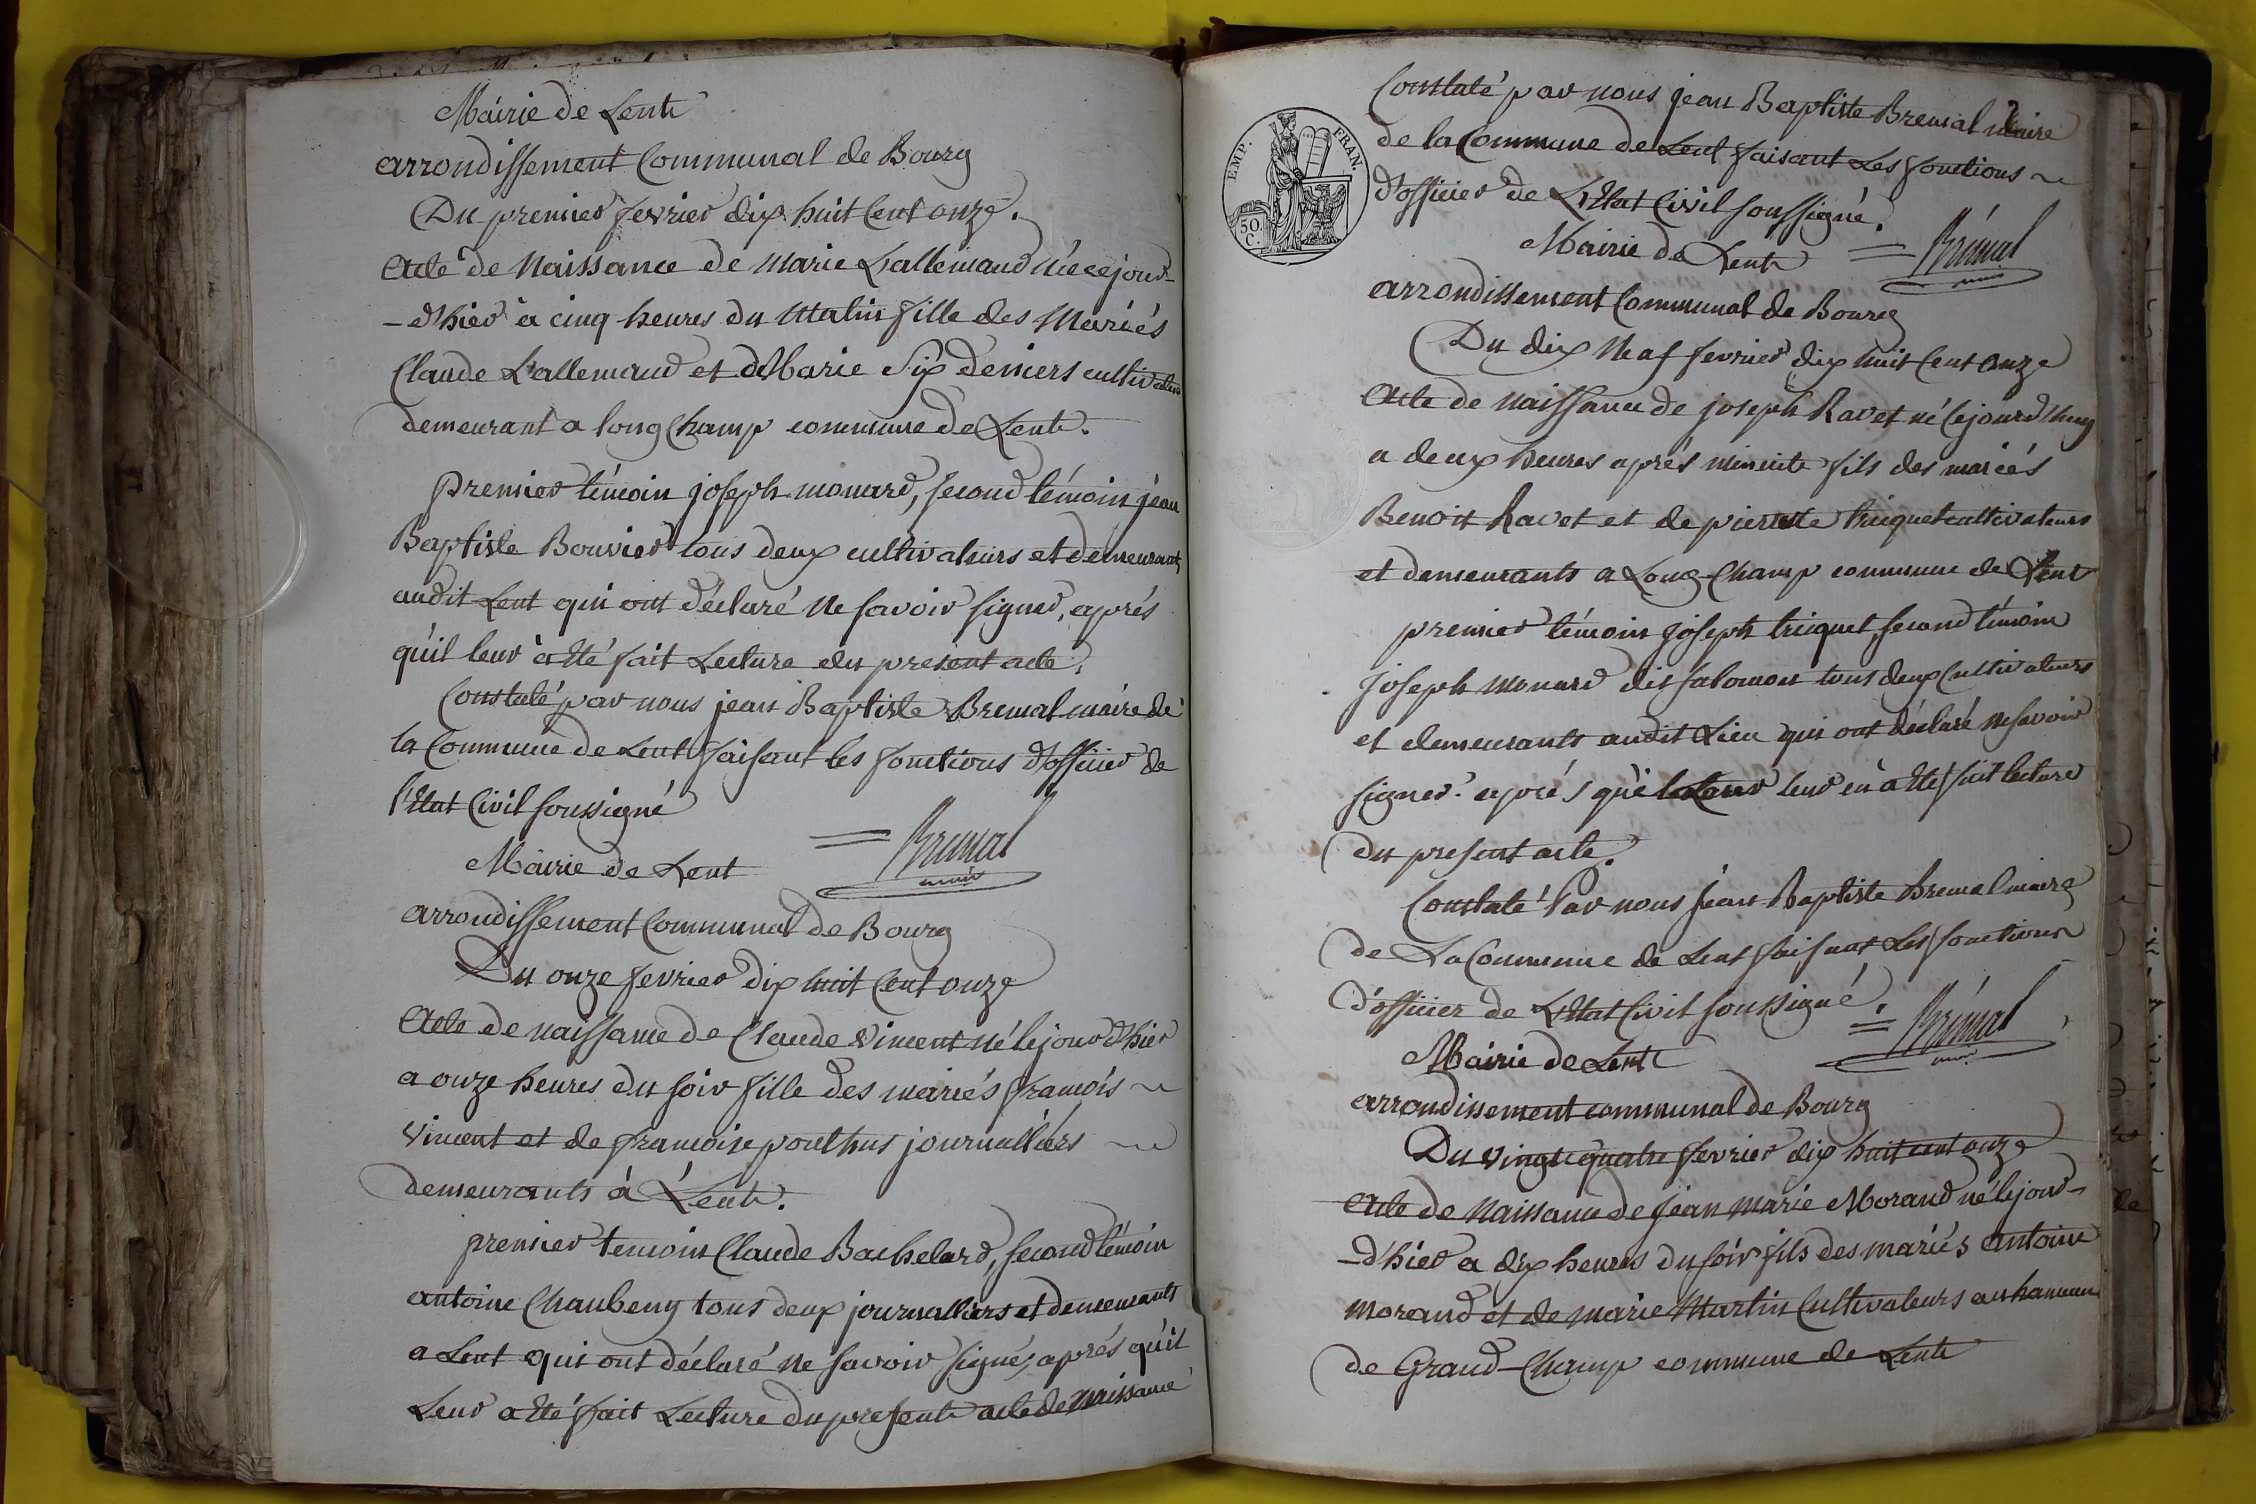 Mairie de Lent
arrondissement Communal de Bourg
Du premier fevrier dix huit Cent onze.
Acte de Naissance de Marie Lallemand née ce jour
-d'hier à cinq heures du Matin fille des Mariés
Claude Lallemand et de Marie Six deniers cultivateurs
demeurant a long Champ commune de Lent.
Premier témoin joseph monard, second témoin jean
Baptiste Bouvier tous deux cultivateurs et demeurants
audit Lent qui ont déclaré ne savoir signer, aprés
qu'il leur à Eté fait Lecture du present acte.
Constaté par nous jean Baptiste Bremal maire de
la Commune de Lent faisant les fonctions d'officier de
l'Etat Civil soussigné
= Bremal
maire
Mairie de Lent
arrondissement Communal de Bourg
Du onze fevrier dix huit Cent onze
Acte de naissance de Claude Vincent né le jour d'hier
a onze heures du soir fille des mariés francois ~
Vincent et de francoise pouthus journalliers ~
demeurants à Lent.
premier temoin Claude Bachelard, second témoin
antoine Chaubeny tous deux journalliers et demeurants
a Lent qui ont déclaré ne savoir signé, aprés qu'il
Leur a Eté fait Lecture du present acte de naissance
EMP. FRAN.
50
C.
Constaté par nous jean Baptiste Bremal maire
de la Commune de Lent faisant Les fonctions ~
d'officier de L'Etat Civil soussigné.
= Brémal
maire
Mairie de Lent
arrondissement Communal de Bourg
Du dix Neaf fevrier dix huit Cent onze
Acte de naissance de joseph Ravet né Cejourd'huy
a deux heures aprés minuite fils des mariés
Benoit Ravet et de pierrette triquet cultivateurs
et demeurants a Long-Champ commune de Lent
premier témoin joseph triquet, second témoin
joseph monard dit salomon tous deux Cultivateurs
et demeurants audit Lieu qui ont déclaré ne savoir
signer. aprés leur en a Eté fait lecture
du present acte.
Constaté Par nous jean Baptiste Bremal maire
de La Commune de Lent faisant Les fonctions
d'officier de L'Etat Civil soussigné.
= Brémal
maire
Mairie de Lent
arrondissement communal de Bourg
Du vingt quatre fevrier dix huit cent onze
Acte de Naissance de jean marie Morand né le jour-
-d'hier a dix heures du soir fils des mariés antoine
morand et de marie Martin Cultivateurs au hameau
de Grand-Champ commune de Lent